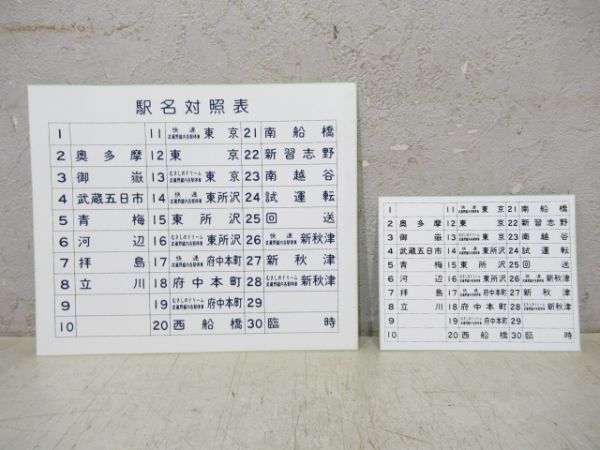 駅名対照表
1 11 快速 武蔵野線内各駅停車 東京 21 南船橋
2 奥多摩 12 東京 22 新習志野
3 御嶽 13 むさしのドリーム 武蔵野線内各駅停車 東京 23 南越谷
4 武蔵五日市 14 快速 武蔵野線内各駅停車 東所沢 24 試運転
5 青梅 15 東所沢 25 回送
6 河辺 16 むさしのドリーム 武蔵野線内各駅停車 東所沢 26 快速 武蔵野線内各駅停車 新秋津
7 拝島 17 快速 武蔵野線内各駅停車 府中本町 27 新秋津
8 立川 18 府中本町 28 むさしのドリーム 武蔵野線内各駅停車 新秋津
9 19 むさしのドリーム 武蔵野線内各駅停車 府中本町 29
10 20 西船橋 30 臨時
1 11 東京 21 南船橋
2 奥多摩 12 東京 22 新習志野
3 御嶽 13 東京 23 南越谷
4 武蔵五日市 14 東所沢 24 試運転
5 青梅 15 東所沢 25 回送
6 河辺 16 東所沢 26 新秋津
7 拝島 17 府中本町 27 新秋津
8 立川 18 府中本町 28 新秋津
9 19 府中本町 29
10 20 西船橋 30 臨時